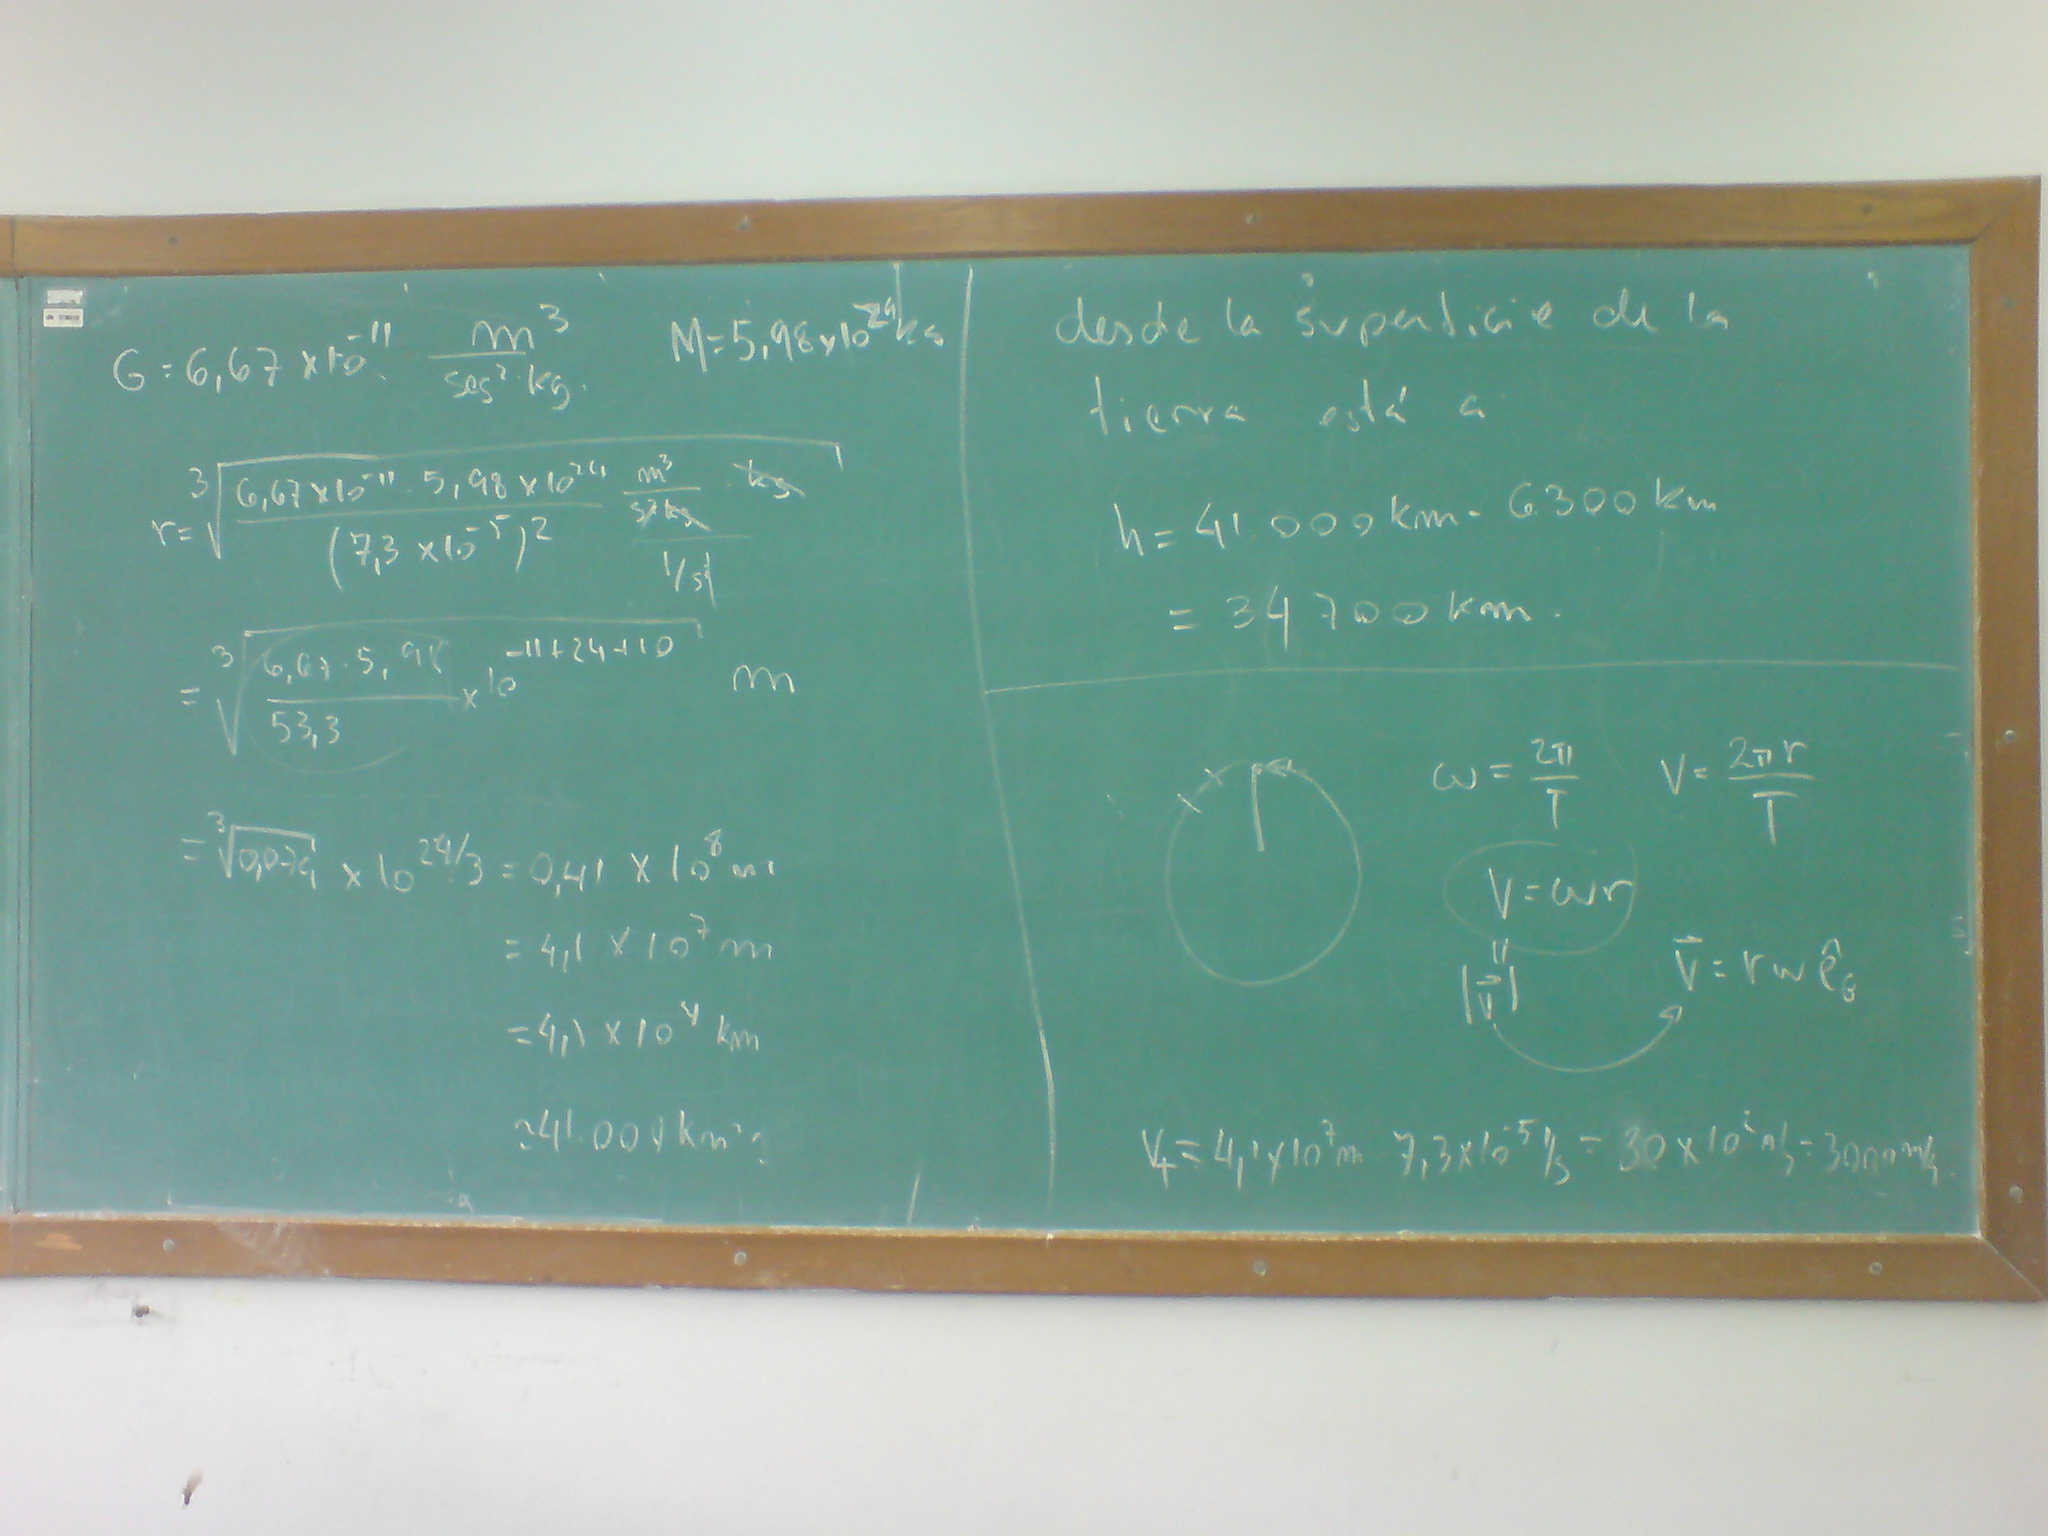 G = 6,67 x10⁻¹¹ m³/seg²·kg. M = 5,98 x10²⁴ kg
r = ∛(6,67 x10⁻¹¹ · 5,98 x10²⁴ / (7,3 x10⁻⁵)² · m³/s²kg · kg / 1/s²)
= ∛(6,67 · 5,98 / 53,3 x 10⁻¹¹⁺²⁴⁺¹⁰) m
x 10^24/3 = 0,41 x 10⁸ m
= 4,1 x 10⁷ m
= 4,1 x 10⁴ km
desde la superficie de la
tierra está a
h = 41.000 km - 6300 km
= 34700 km.
ω = 2π/T V = 2πr/T
V = ωr
||
|v⃗| v⃗ = r ω ê_θ
= 4,1 x10⁷ m 7,3 x10⁻⁵ 1/s = 30 x 10² m/s = 3000 m/s.